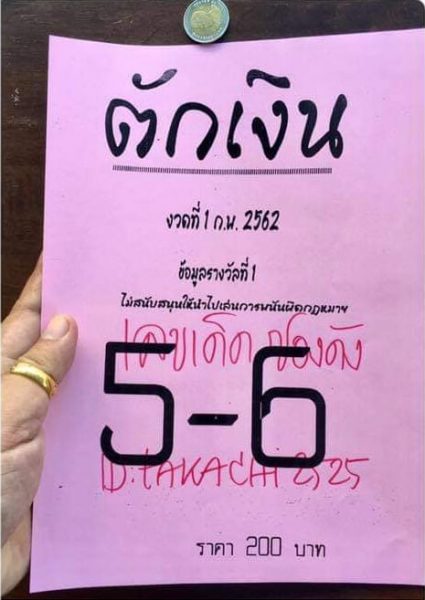 ตักเงิน
งวดที่ 1 ก.พ. 2562
ข้อมูลรางวัลที่ 1
ไม่สนับสนุนให้นำไปเล่นการพนันผิดกฎหมาย
เลขเด็ด ซองดัง
5-6
ID:TAKACHI2525
ราคา 200 บาท